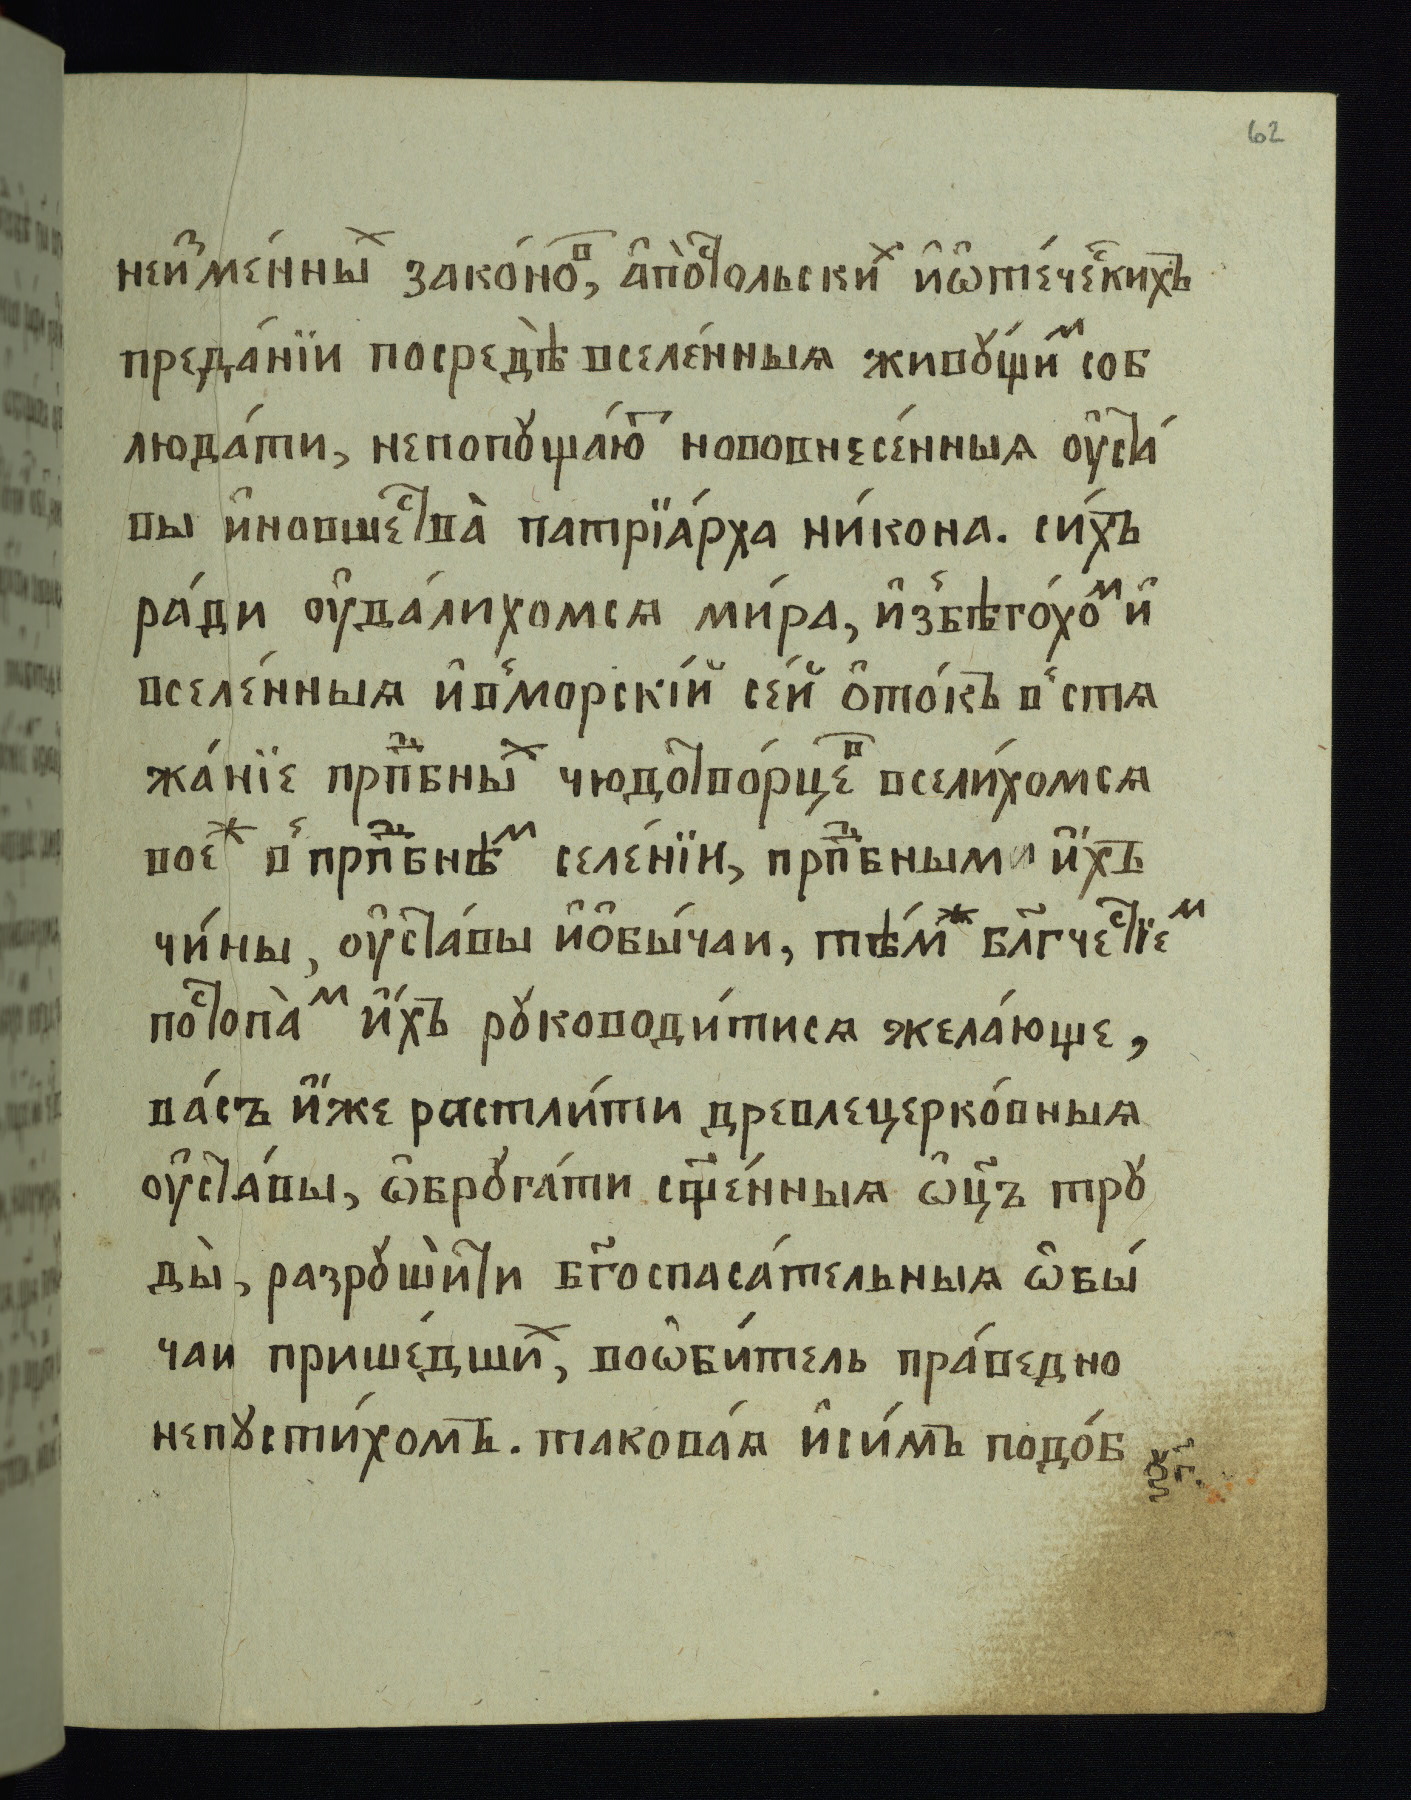 62
неи҆ме́нныⷯ зако́ноⷡ, а҆по̀ⷭ҇тольскиⷯ и҆ѡ҆те́чеⷭ҇кихъ
преда́нїи посредѣ̀ вселе́нныѧ живꙋ́щиⷨ соб
люда́ти, непопꙋща́юⷮ нововнесе́нныѧ оу҆ста́
вы и҆новшеⷭ҇тва̀ патрїа́рха ни́кона. си́хъ
ра́ди оу҆да́лихомсѧ ми́ра, и҆збѣго́хоⷨ и҆
вселе́нныѧ и҆в̾морскі́й се́й ѻ҆то́къ в̾ стѧ
жа́нїе прпⷣбныⷯ чюдотво́рцеⷡ вселихомсѧ
воеⷤ в̾ прпⷣбнѣⷨ селе́нїи, прпⷣбными и҆́хъ
чи́ны, оу҆ста́вы и҆ѻ҆бы́чаи, тѣ́мⷤ бл҃гчеⷭ҇тїеⷨ
поⷭ҇топа̀ⷨ и҆́хъ рꙋководи́тисѧ жела́юще,
ва́съ и҆́же растли́ти древлецерко́вныѧ
оу҆ста́вы, ѡ҆брꙋга́ти сщ҃е́нныѧ ѡ҆ц҃ъ трꙋ
ды̀, разрꙋши̇ти бг҃оспаса́тельныѧ ѡ҆бы́
чаи прише́дшиⷯ, воѡ҆би́тель пра́ведно
непꙋсти́хомъ. такова́ѧ и҆си́мъ подо́б
ѯ҃г.